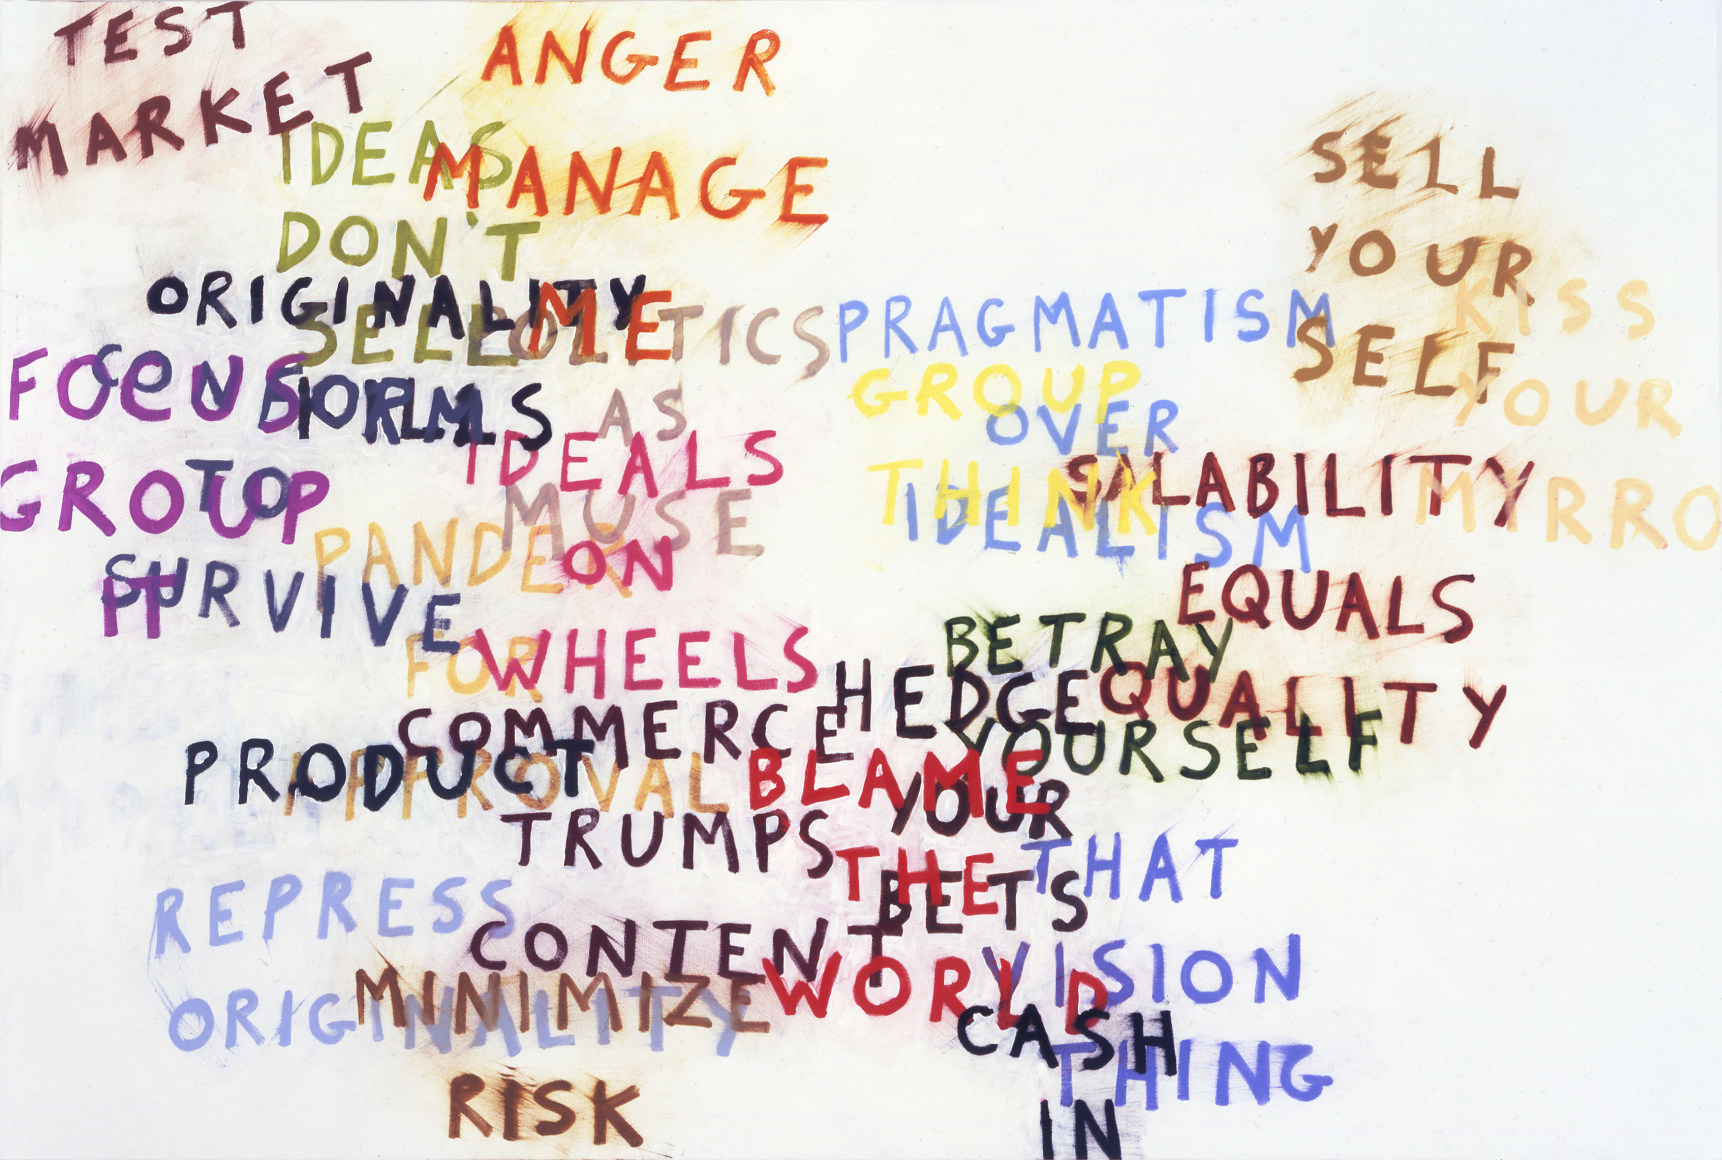 TEST
MARKET
ANGER
MANAGE
ME
IDEAS
DON'T
SELL
SELL
YOUR
SELF
ORIGINALITY
PRODUCT
POLITICS
AS
MUSE
PRAGMATISM
OVER
IDEALISM
KISS
YOUR
MYRRO
FOCUS
GROUP
IT
CONFORM
TO
SURVIVE
GROUP
THINK
IDEALS
ON
WHEELS
SALABILITY
EQUALS
QUALITY
PANDER
FOR
APPROVAL
BETRAY
YOURSELF
HEDGE
YOUR
BETS
COMMERCE
TRUMPS
CONTENT
BLAME
THE
WORLD
THAT
VISION
THING
REPRESS
ORIGINALITY
MINIMIZE
RISK
CASH
IN